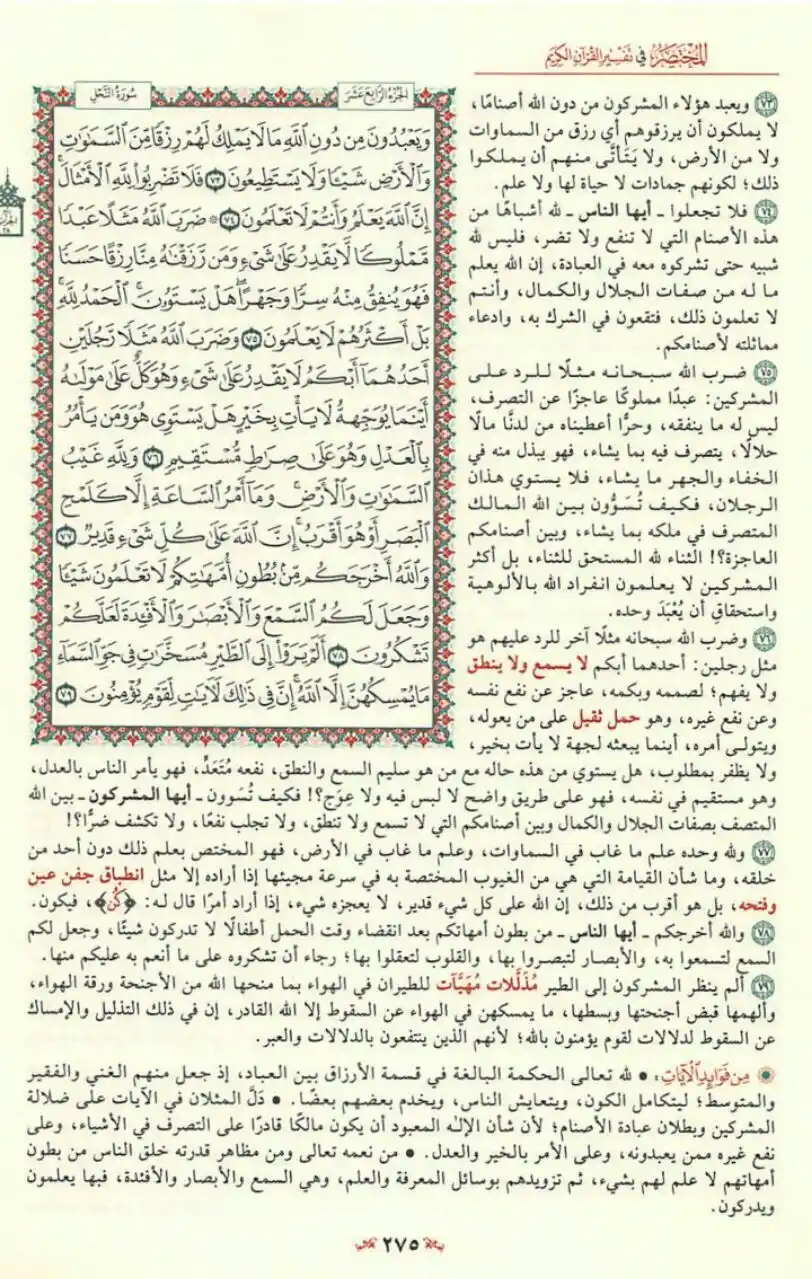 المختصر في تفسير القرآن الكريم
الجزء الرابع عشر
سورة النحل
وَيَعْبُدُونَ مِن دُونِ ٱللَّهِ مَا لَا يَمْلِكُ لَهُمْ رِزْقًا مِّنَ ٱلسَّمَٰوَٰتِ
وَٱلْأَرْضِ شَيْـًٔا وَلَا يَسْتَطِيعُونَ ٧٣ فَلَا تَضْرِبُوا۟ لِلَّهِ ٱلْأَمْثَالَ ۚ
إِنَّ ٱللَّهَ يَعْلَمُ وَأَنتُمْ لَا تَعْلَمُونَ ٧٤ ۞ ضَرَبَ ٱللَّهُ مَثَلًا عَبْدًا
مَّمْلُوكًا لَّا يَقْدِرُ عَلَىٰ شَىْءٍ وَمَن رَّزَقْنَٰهُ مِنَّا رِزْقًا حَسَنًا
فَهُوَ يُنفِقُ مِنْهُ سِرًّا وَجَهْرًا ۖ هَلْ يَسْتَوُۥنَ ۚ ٱلْحَمْدُ لِلَّهِ ۚ
بَلْ أَكْثَرُهُمْ لَا يَعْلَمُونَ ٧٥ وَضَرَبَ ٱللَّهُ مَثَلًا رَّجُلَيْنِ
أَحَدُهُمَآ أَبْكَمُ لَا يَقْدِرُ عَلَىٰ شَىْءٍ وَهُوَ كَلٌّ عَلَىٰ مَوْلَىٰهُ
أَيْنَمَا يُوَجِّههُّ لَا يَأْتِ بِخَيْرٍ ۖ هَلْ يَسْتَوِى هُوَ وَمَن يَأْمُرُ
بِٱلْعَدْلِ ۙ وَهُوَ عَلَىٰ صِرَٰطٍ مُّسْتَقِيمٍ ٧٦ وَلِلَّهِ غَيْبُ
ٱلسَّمَٰوَٰتِ وَٱلْأَرْضِ ۚ وَمَآ أَمْرُ ٱلسَّاعَةِ إِلَّا كَلَمْحِ
ٱلْبَصَرِ أَوْ هُوَ أَقْرَبُ ۚ إِنَّ ٱللَّهَ عَلَىٰ كُلِّ شَىْءٍ قَدِيرٌ ٧٧
وَٱللَّهُ أَخْرَجَكُم مِّنۢ بُطُونِ أُمَّهَٰتِكُمْ لَا تَعْلَمُونَ شَيْـًٔا
وَجَعَلَ لَكُمُ ٱلسَّمْعَ وَٱلْأَبْصَٰرَ وَٱلْأَفْـِٔدَةَ ۙ لَعَلَّكُمْ
تَشْكُرُونَ ٧٨ أَلَمْ يَرَوْا۟ إِلَى ٱلطَّيْرِ مُسَخَّرَٰتٍ فِى جَوِّ ٱلسَّمَآءِ
مَا يُمْسِكُهُنَّ إِلَّا ٱللَّهُ ۗ إِنَّ فِى ذَٰلِكَ لَءَايَٰتٍ لِّقَوْمٍ يُؤْمِنُونَ ٧٩
٧٣ ويعبد هؤلاء المشركون من دون الله أصنامًا،
لا يملكون أن يرزقوهم أي رزق من السماوات
ولا من الأرض، ولا يَتَأَتَّى منهم أن يملكوا
ذلك؛ لكونهم جمادات لا حياة لها ولا علم.
٧٤ فلا تجعلوا - أيها الناس - لله أشباهًا من
هذه الأصنام التي لا تنفع ولا تضر، فليس لله
شبيه حتى تشركوه معه في العبادة، إن الله يعلم
ما له من صفات الجلال والكمال، وأنتم
لا تعلمون ذلك، فتقعون في الشرك به، وادعاء
مماثلته لأصنامكم.
٧٥ ضرب الله سبحانه مثلًا للرد على
المشركين: عبدًا مملوكًا عاجزًا عن التصرف،
ليس له ما ينفقه، وحرًّا أعطيناه من لدنَّا مالًا
حلالًا، يتصرف فيه بما يشاء، فهو يبذل منه في
الخفاء والجهر ما يشاء، فلا يستوي هذان
الرجلان، فكيف تُسَوُّون بين الله المالك
المتصرف في ملكه بما يشاء، وبين أصنامكم
العاجزة؟! الثناء لله المستحق للثناء، بل أكثر
المشركين لا يعلمون انفراد الله بالألوهية
واستحقاق أن يُعْبَدَ وحده.
٧٦ وضرب الله سبحانه مثلًا آخر للرد عليهم هو
مثل رجلين: أحدهما أبكم لا يسمع ولا ينطق
ولا يفهم؛ لصممه وبكمه، عاجز عن نفع نفسه
وعن نفع غيره، وهو حمل ثقيل على من يعوله،
ويتولى أمره، أينما يبعثه لجهة لا يأت بخير،
ولا يظفر بمطلوب، هل يستوي من هذه حاله مع من هو سليم السمع والنطق، نفعه مُتَعَدٍّ، فهو يأمر الناس بالعدل،
وهو مستقيم في نفسه، فهو على طريق واضح لا لبس فيه ولا عِوَج؟! فكيف تُسَوون - أيها المشركون - بين الله
المتصف بصفات الجلال والكمال وبين أصنامكم التي لا تسمع ولا تنطق، ولا تجلب نفعًا، ولا تكشف ضرًّا؟!
٧٧ ولله وحده علم ما غاب في السماوات، وعلم ما غاب في الأرض، فهو المختص بعلم ذلك دون أحد من
خلقه، وما شأن القيامة التي هي من الغيوب المختصة به في سرعة مجيئها إذا أراده إلا مثل انطباق جفن عين
وفتحه، بل هو أقرب من ذلك، إن الله على كل شيء قدير، لا يعجزه شيء، إذا أراد أمرًا قال له: ﴿كُن﴾، فيكون.
٧٨ والله أخرجكم - أيها الناس - من بطون أمهاتكم بعد انقضاء وقت الحمل أطفالًا لا تدركون شيئًا، وجعل لكم
السمع لتسمعوا به، والأبصار لتبصروا بها، والقلوب لتعقلوا بها؛ رجاء أن تشكروه على ما أنعم به عليكم منها.
٧٩ ألم ينظر المشركون إلى الطير مُذَلَّلات مُهَيَّآت للطيران في الهواء بما منحها الله من الأجنحة ورقة الهواء،
وألهمها قبض أجنحتها وبسطها، ما يمسكهن في الهواء عن السقوط إلا الله القادر، إن في ذلك التذليل والإمساك
عن السقوط لدلالات لقوم يؤمنون بالله؛ لأنهم الذين ينتفعون بالدلالات والعبر.
من فوائد الآيات: • لله تعالى الحكمة البالغة في قسمة الأرزاق بين العباد، إذ جعل منهم الغني والفقير
والمتوسط؛ ليتكامل الكون، ويتعايش الناس، ويخدم بعضهم بعضًا. • دَلَّ المثلان في الآيات على ضلالة
المشركين وبطلان عبادة الأصنام؛ لأن شأن الإله المعبود أن يكون مالكًا قادرًا على التصرف في الأشياء، وعلى
نفع غيره ممن يعبدونه، وعلى الأمر بالخير والعدل. • من نعمه تعالى ومن مظاهر قدرته خلق الناس من بطون
أمهاتهم لا علم لهم بشيء، ثم تزويدهم بوسائل المعرفة والعلم، وهي السمع والأبصار والأفئدة، فبها يعلمون
ويدركون.
٢٧٥